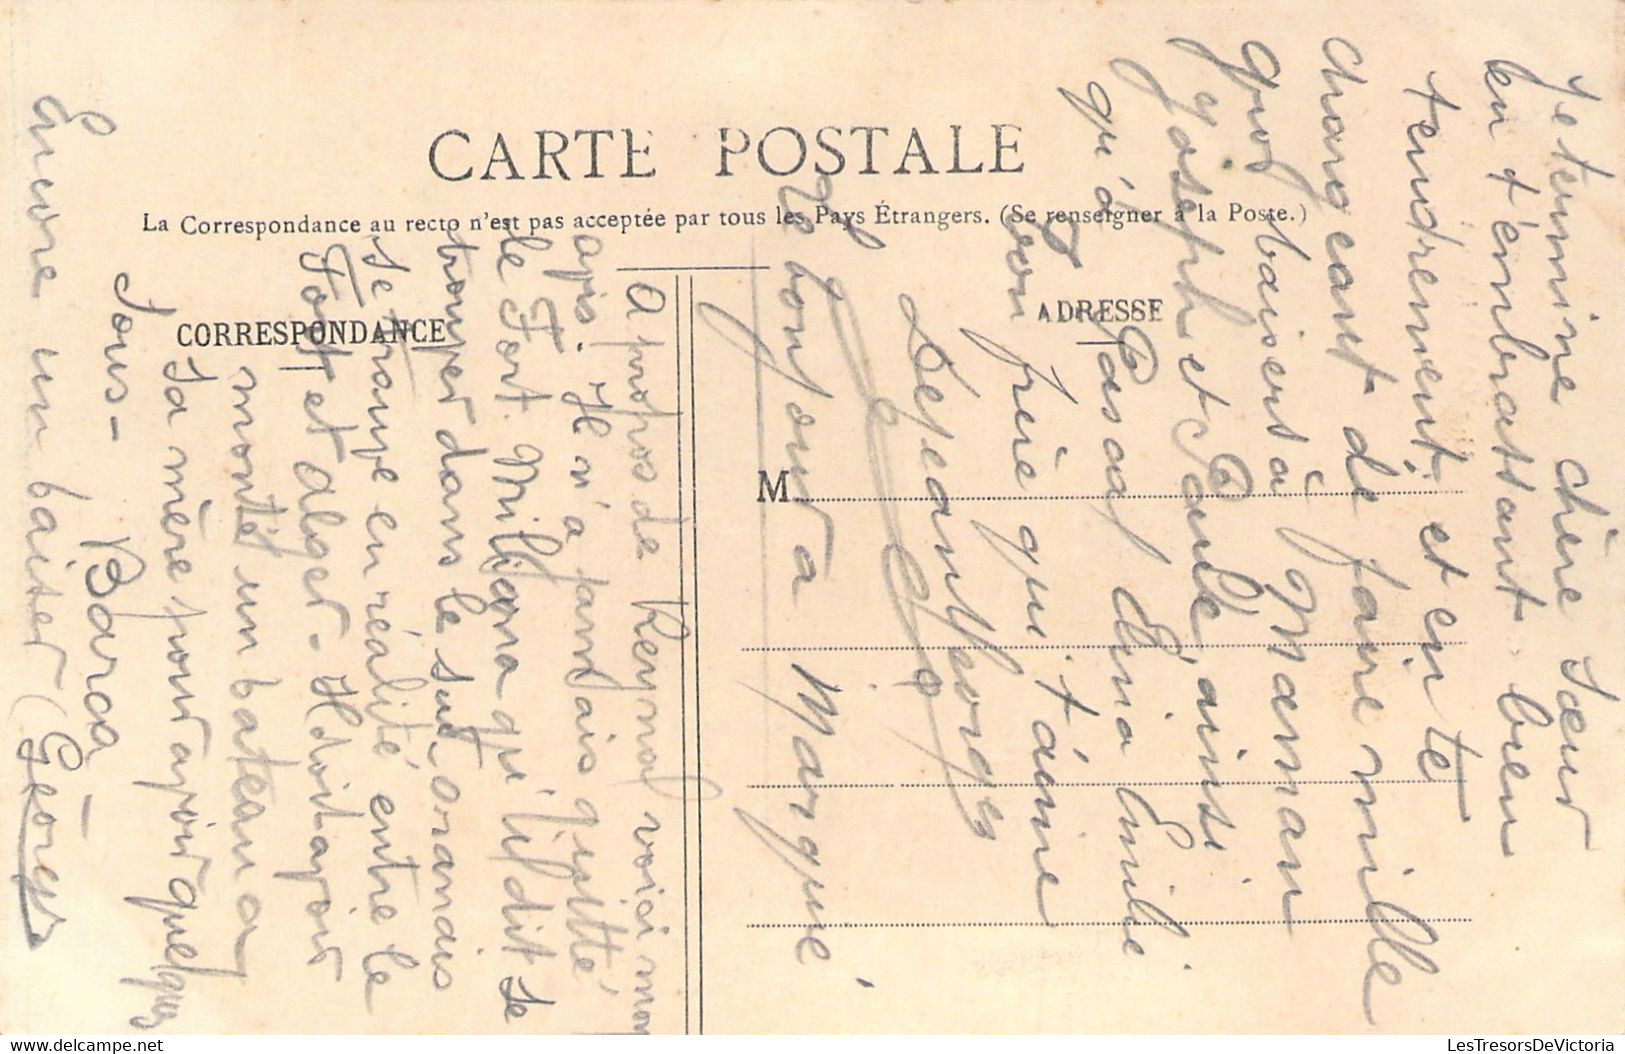 CARTE POSTALE
La Correspondance au recto n'est pas acceptée par tous les Pays Étrangers. (Se renseigner à la Poste.)
CORRESPONDANCE
ADRESSE
M
Je termine chère sœur
en t'embrassant bien
tendrement, et en te
chargeant de faire mille
gros baisers à Maman
Joseph et Paule, ainsi
qu'à Pascal Emilie
Ton frère qui t'aime
DejeanGeorges
Le bonjour à Marqué
A propos de Reynal voici mon
avis. Il n'a jamais quitté
le Fort. Miliana qu'il dit se
trouver dans le sud oranais
se trouve en réalité entre le
Fort et Alger. Il doit avoir
monté un bateau a
sa mère pour avoir quelques
sous -
Bara
Encore un baiser (Georges
LesTresorsDeVictoria
https://www.delcampe.net